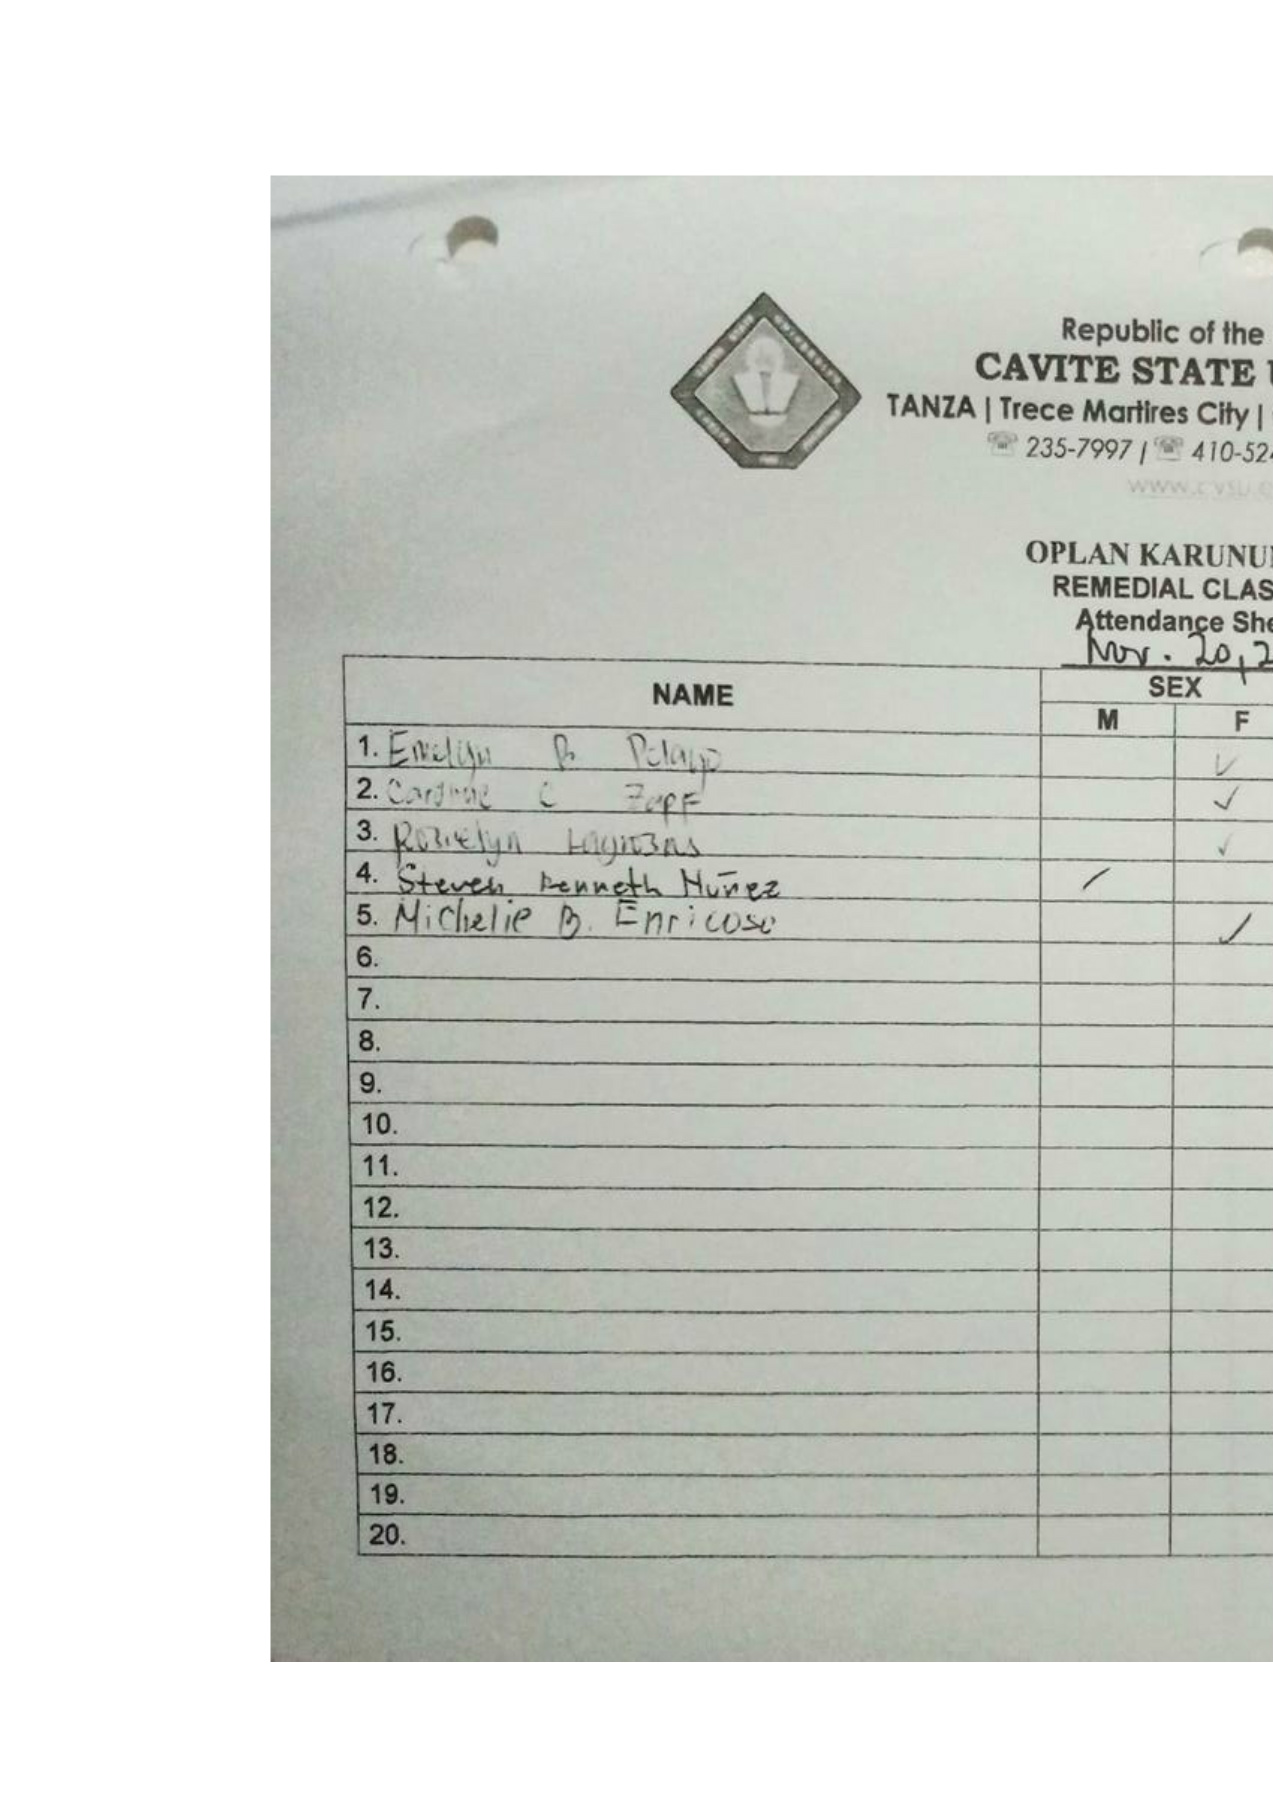 Republic of the
CAVITE STATE
TANZA | Trece Martires City |
235-7997 / 410-52
OPLAN KARUNU
REMEDIAL CLAS
Attendance She
Nov. 20, 2
NAME SEX
M F
1. Emelyn B Pelayo
2. C Zapf
3. Roszelyn
4. Steven Kenneth Nuñez
5. Michelle B. Enricoso
6.
7.
8.
9.
10.
11.
12.
13.
14.
15.
16.
17.
18.
19.
20.